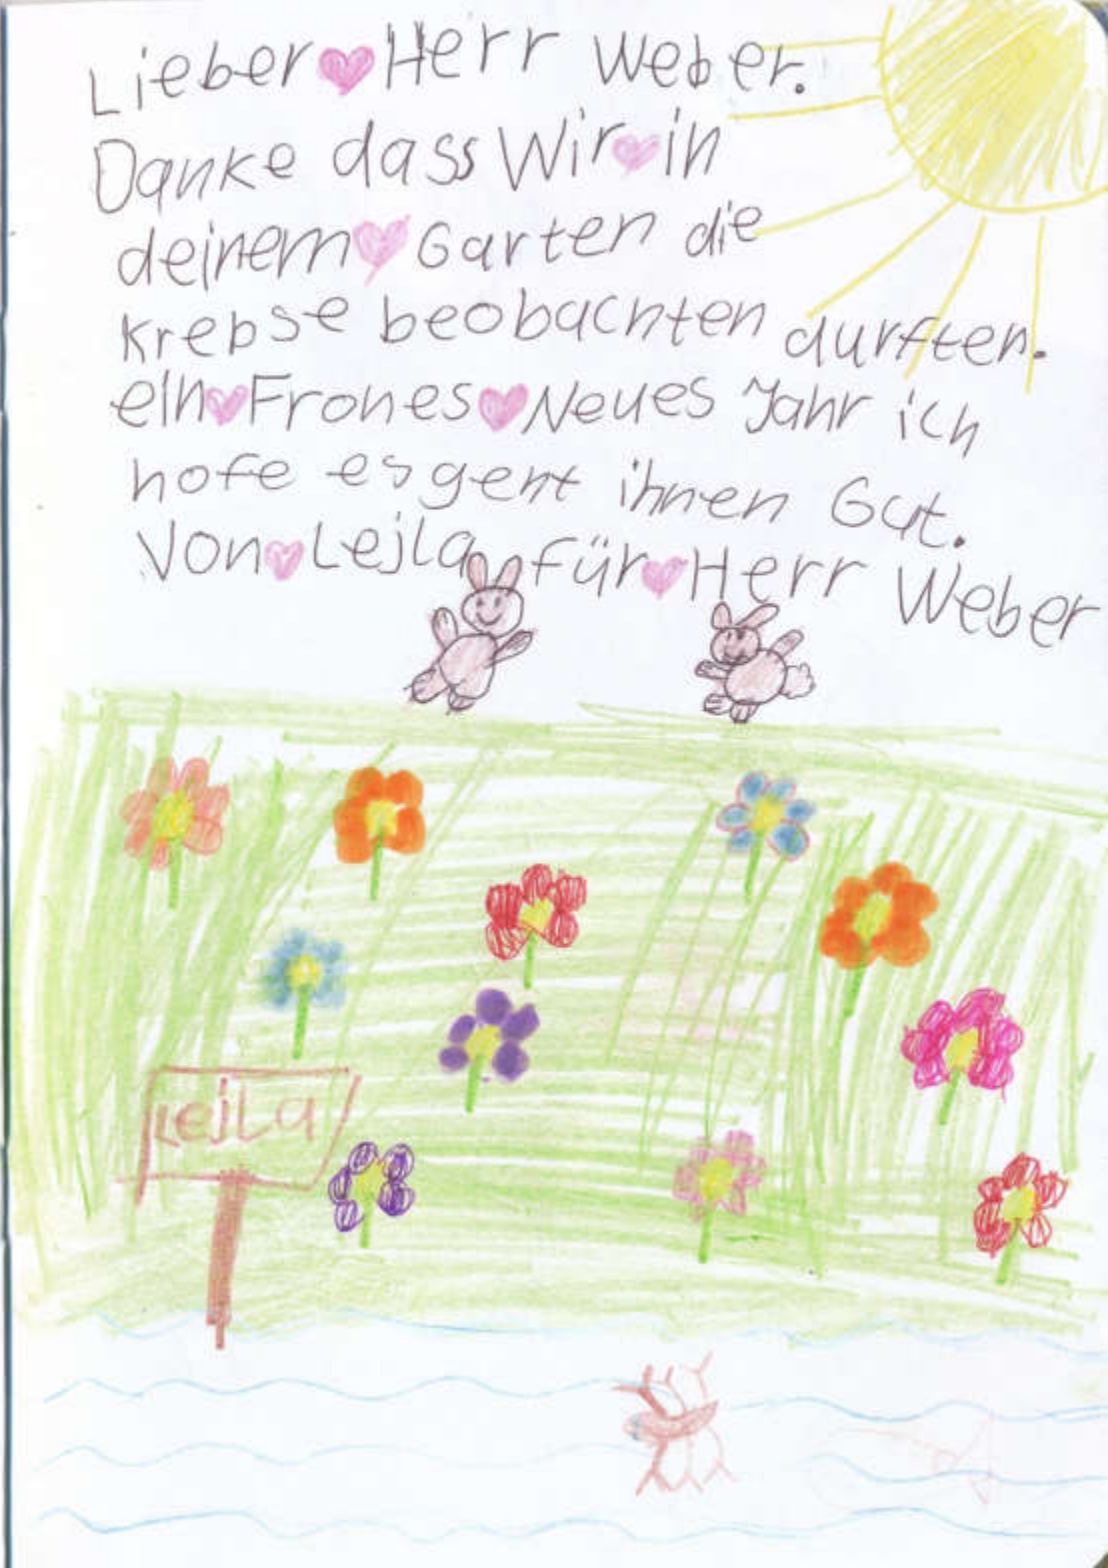 Lieber Herr Weber.
Danke dass Wir in
deinem Garten die
Krebse beobachten durften.
ein Frohes Neues Jahr ich
hofe es geht ihnen Gut.
Von Lejla für Herr Weber
Lejla